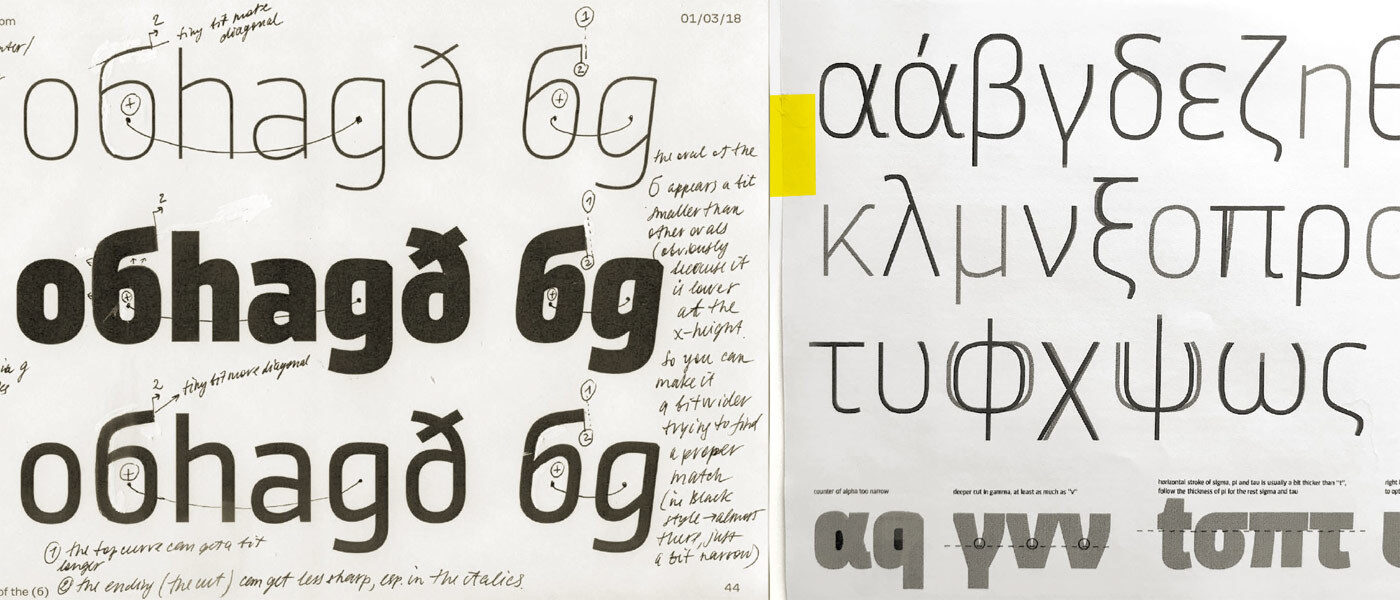 om
01/03/18
2
tiny bit more
diagonal
1
2
обhagð
бg
the oval of the
б appears a bit
smaller than
other ovals
(obviously
because it
is lower
at the
x-height.
So you can
make it
a bit wider
trying to find
a proper
match
(in Black
style → almost
there, just
a bit narrow)
2
1
2
обhagð
бg
2
tiny bit more diagonal
1
2
обhagð
бg
① the top curve can get a bit
longer
② the ending (the cut) can get less sharp, esp. in the italics.
of the (6)
44
αάβγδεζηθ
κλμνξοπρσ
τυφχψως
counter of alpha too narrow
deeper cut in gamma, at least as much as "v"
horizontal stroke of sigma, pi and tau is usually a bit thicker than "t",
follow the thickness of pi for the rest sigma and tau
αq
γνv
tσπτ